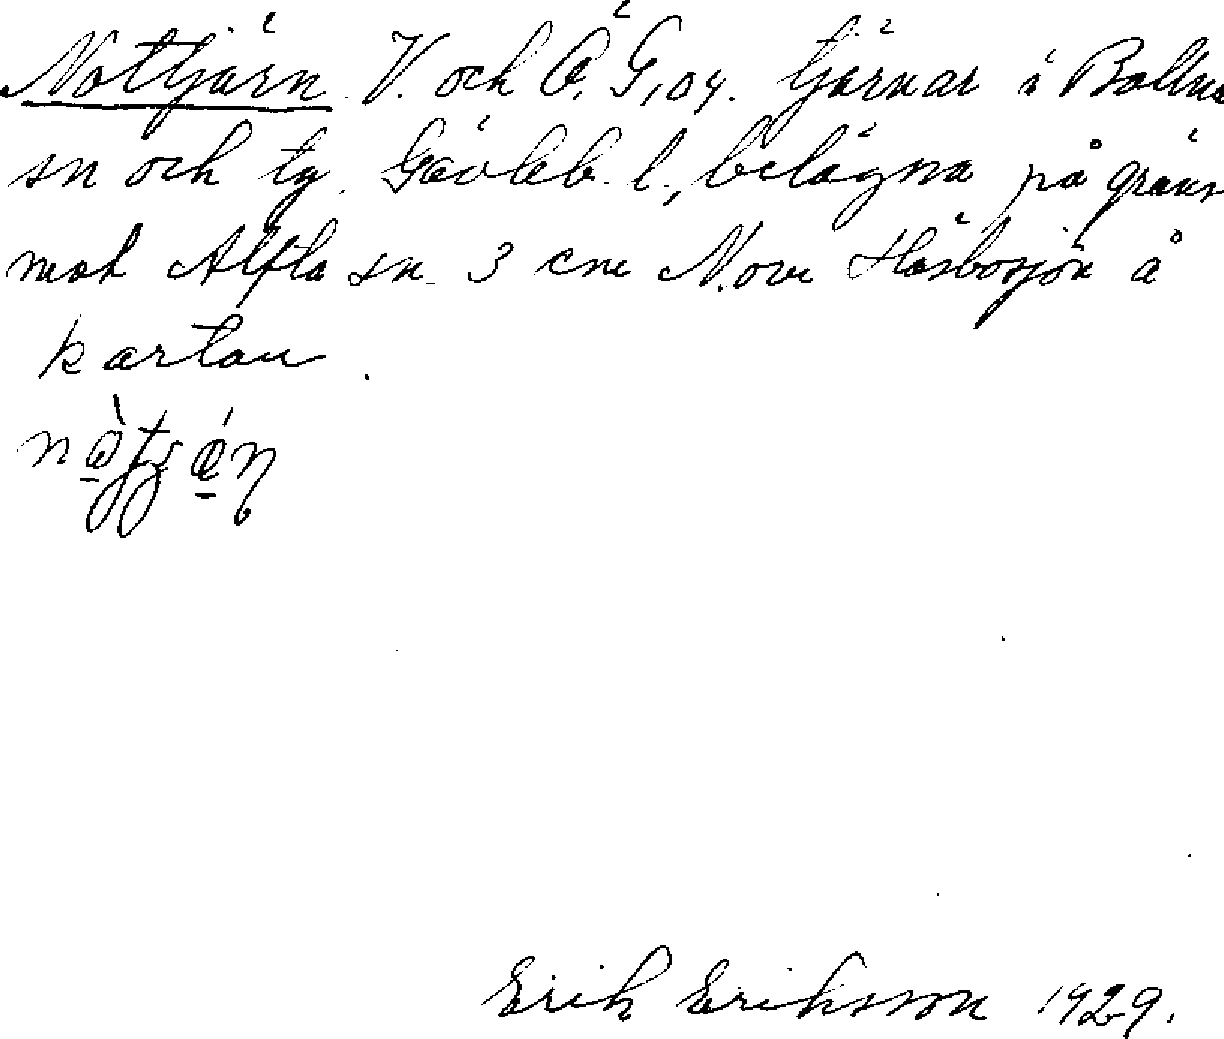 Nottjärn V. och Ö. G,04. tjärnar i Bollnä
sn och tg. Gävleb. l., belägna på gräns
mot Alfta sn 3 cm N.om Häsbosjön å
kartan.
Erik Eriksson 1929.